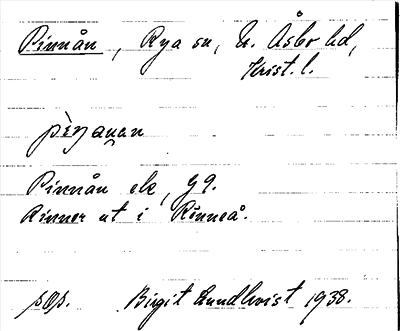 Pinnån, Rya sn, N. Åsbo hd,
Krist. l.
pìnanan
Pinnån ek, G9.
Rinner ut i Rönneå.
pop. Birgit Lundkvist 1938.